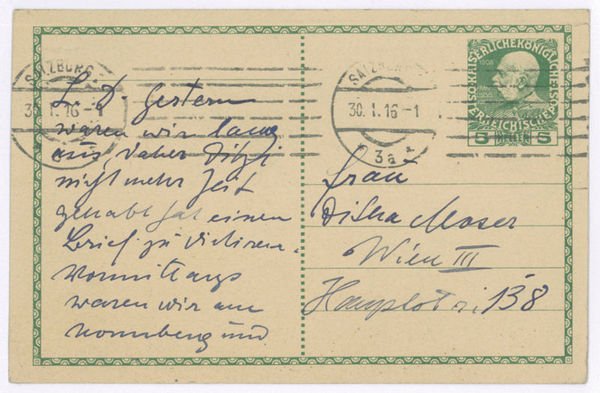 SALZBURG
30.I.16-1
SALZBURG
30.I.16-1
3a
KAISERLICHEKÖNIGLICHE
ÖSTERREICHISCHE POST
5 HELLER 5
L. D. Gestern
waren wir lang
aus, daher Ditzi
nicht mehr Zeit
gehabt hat einen
Brief zu dictiren.
Vormittags
waren wir am
Nonnberg und
Frau
Ditha Moser
Wien III
138